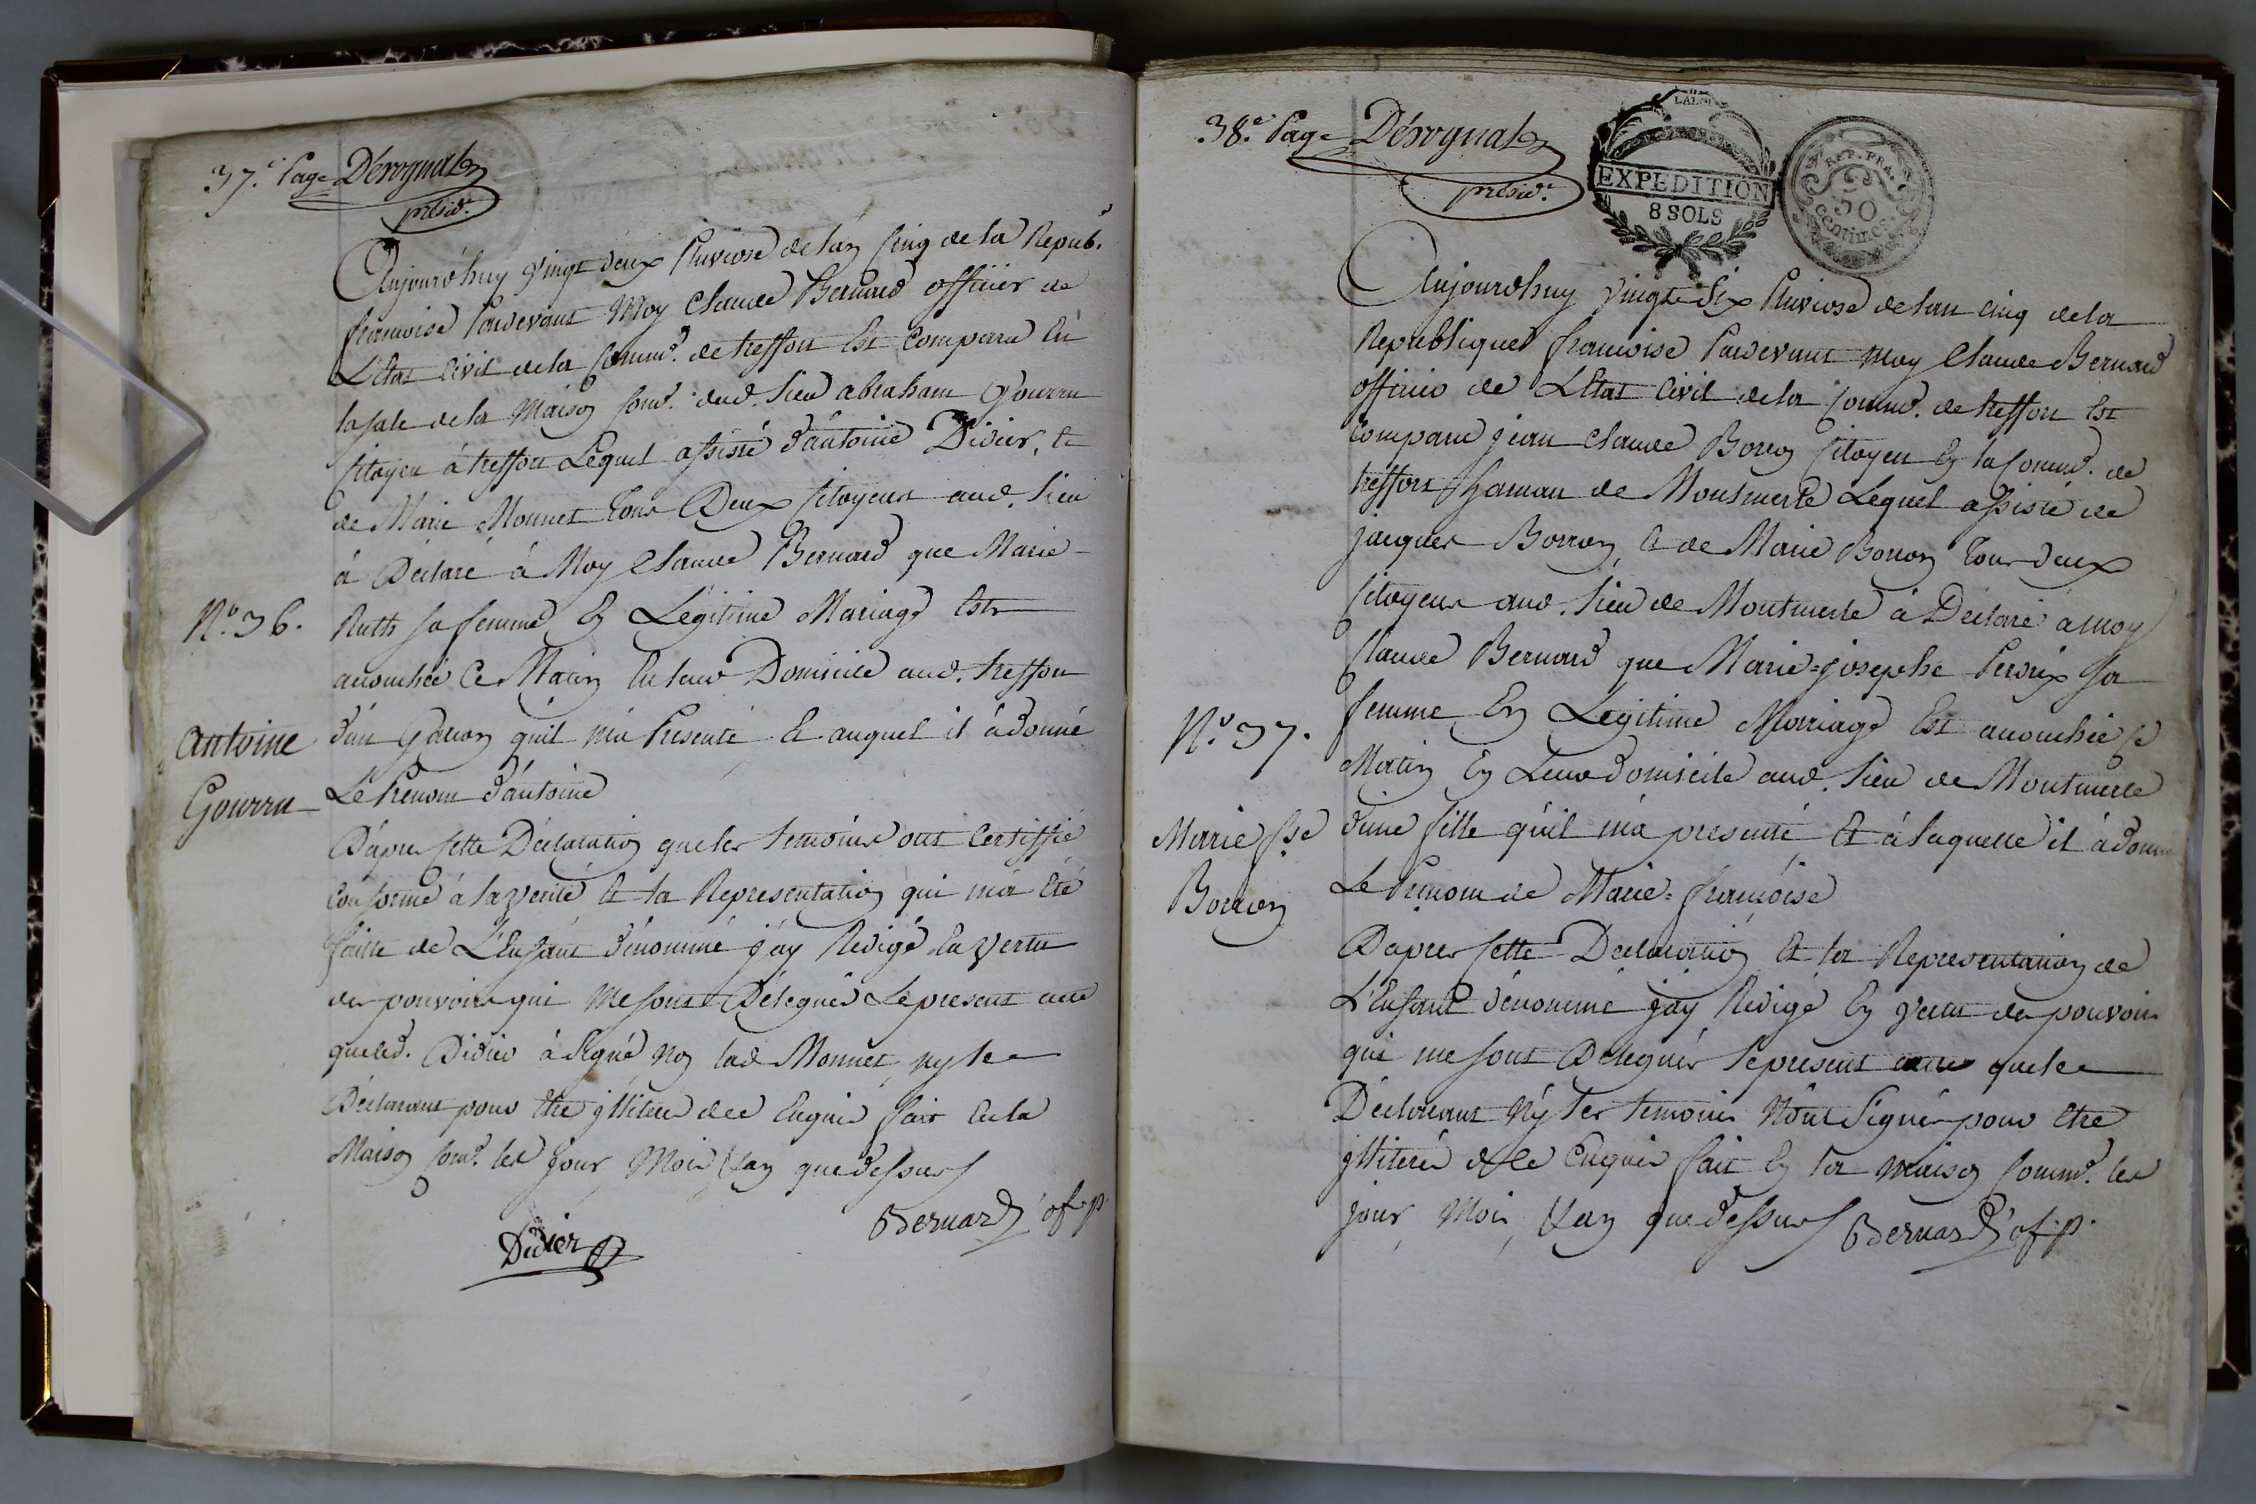 37.e Page Dérognat
présid.t
Aujourd'huy vingt deux Pluviose de l'an Cinq de la Repub.e
francoise Pardevant Moy Claude Bernard officier de
L'Etat Civil de la Comm.e de treffort Est Comparu En
la sale de la Maison Com.e dud. Lieu abraham Gourru
Citoyen à treffort Lequel assisté d'antoine Didier, Et
de Marie Monnet tous Deux Citoyens aud. Lieu
à Déclaré à Moy Claude Bernard que Marie
N.o 36.
Ruth sa femme En Légitime Mariage Est
accouchée Ce Matin En leur Domicile aud. treffort
antoine
Gourru
d'un Garcon qu'il m'a Presenté Et auquel il à donné
Le Prenom d'antoine
D'apres Cette Déclaration que les temoins ont Certiffié
Conforme à la verité Et la Representation qui m'a Eté
faitte de L'Enfant dénommé j'ay Redigé En vertu
des pouvoirs qui me sont Délegués Le present acte
que led. Didier à signé Non lad. Monnet ny le
Déclarant pour être de ce Enquis fait En la
Maison Com.e les jour Mois & an que dessus
Didier
Bernard of. p.
38.e Page Dérognat
présid.t
EXPEDITION
8 SOLS
REP. FRA.
50
centimes
Aujourdhuy vingt Six Pluviose de l'an cinq de la
Republique francoise Pardevant Moy Claude Bernard
officier de L'Etat Civil de la Comm.e de treffort Est
Comparu jean Claude Borron Citoyen En la Comm.e de
treffort hameau de Montmerle Lequel assisté de
jacques Borron Et de Marie Borron tous deux
Citoyens aud. Lieu de Montmerle à Déclaré à moy
Claude Bernard que Marie-josephe Perdrix sa
N.o 37.
femme En Légitime Mariage Est accouchée Ce
Matin En Leur domicile aud. Lieu de Montmerle
Marie fse
Borron
d'une fille qu'il m'a presenté Et à laquelle il à donné
Le Prenom de Marie-françoise
D'apres Cette Declaration Et la Representation de
L'Enfant dénommé j'ay Redigé En vertu des pouvoirs
qui me sont Delegués le present acte que le
Déclarant Ny les temoins N'ont Signé pour Etre
de Ce Enquis fait En la maison Comm.e les
jour, Mois, & an que dessus
Bernard of. p.